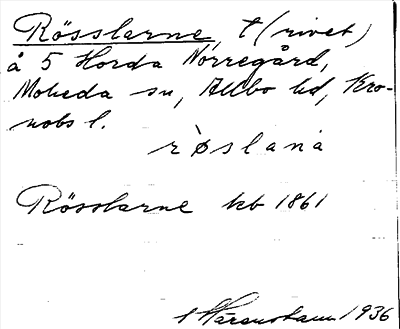 Rösslarne, t (rivet)
å 5 Horda Norregård,
Moheda sn, Allbo hd, Kro-
nobs l.
rø̀slana
Rösslarne kb 1861
1936